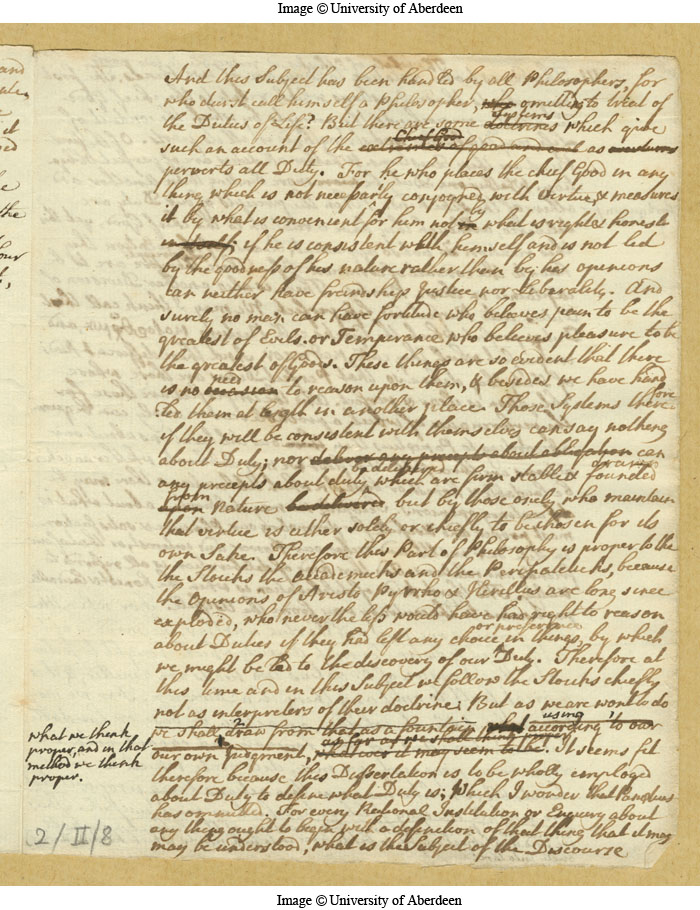 Image © University of Aberdeen
And this Subject has been handled by all Philosophers, for
who durst call himself a Philosopher, who omitting to treat of
systems
the Duties of Life? But there are some doctrines which give
chief Good
such an account of the extremes of good and evil as
perverts all Duty. For he who places the chief Good in any
thing which is not necessarly conjoyned with virtue & measures
it by what is convenient for him not by what is right & honest
in itself; if he is consistent with himself and is not led
by the goodness of his nature rather then by his opinions
can neither have friendship Justice nor Liberality. And
surely no man can have fortitude who believes pain to be the
greatest of Evils. or Temperance who believes pleasure to be
the greatest of Goods. These things are so evident that there
need
is no occasion to reason upon them, & besides we have hand
led them at length in another place. Those Systems there
fore
if they will be consistent with themselves can say nothing
about Duty; nor deliver any precepts about obligation can
be delivered drawn
any precepts about duty which are firm stable & founded
from
upon Nature be delivered but by those onely who maintain
that virtue is either solely or chiefly to be chosen for its
own Sake. Therefore this Part of Philosophy is proper to the
the Stoicks the Academicks and the Peripateticks, because
the Opinions of Aristo Pyrrho & Herillus are long since
exploded, who never the less would have had right to reason
or preference
about Duties if they had left any choice in things, by which
we might be led to the discovery of our Duty. Therefore at
this time and in this Subject we follow the Stoicks chiefly
not as interpreters of their doctrine. But as we are wont to do
using
we shall draw from that as a fountain what according to our
as far as we shall think proper
our own Judgment, what ever it may seem to be. It seems fit
what we think
proper, and in that
method we think
proper.
therefore because this Dissertation is to be wholly employed
about Duty to define what Duty is; which I wonder that Panætius
has ommitted. For every Rational Institution or Enquiry about
any thing ought to begin with a definition of that thing that it may
may be understood, what is the Subject of the Discourse
2/II/8
Image © University of Aberdeen